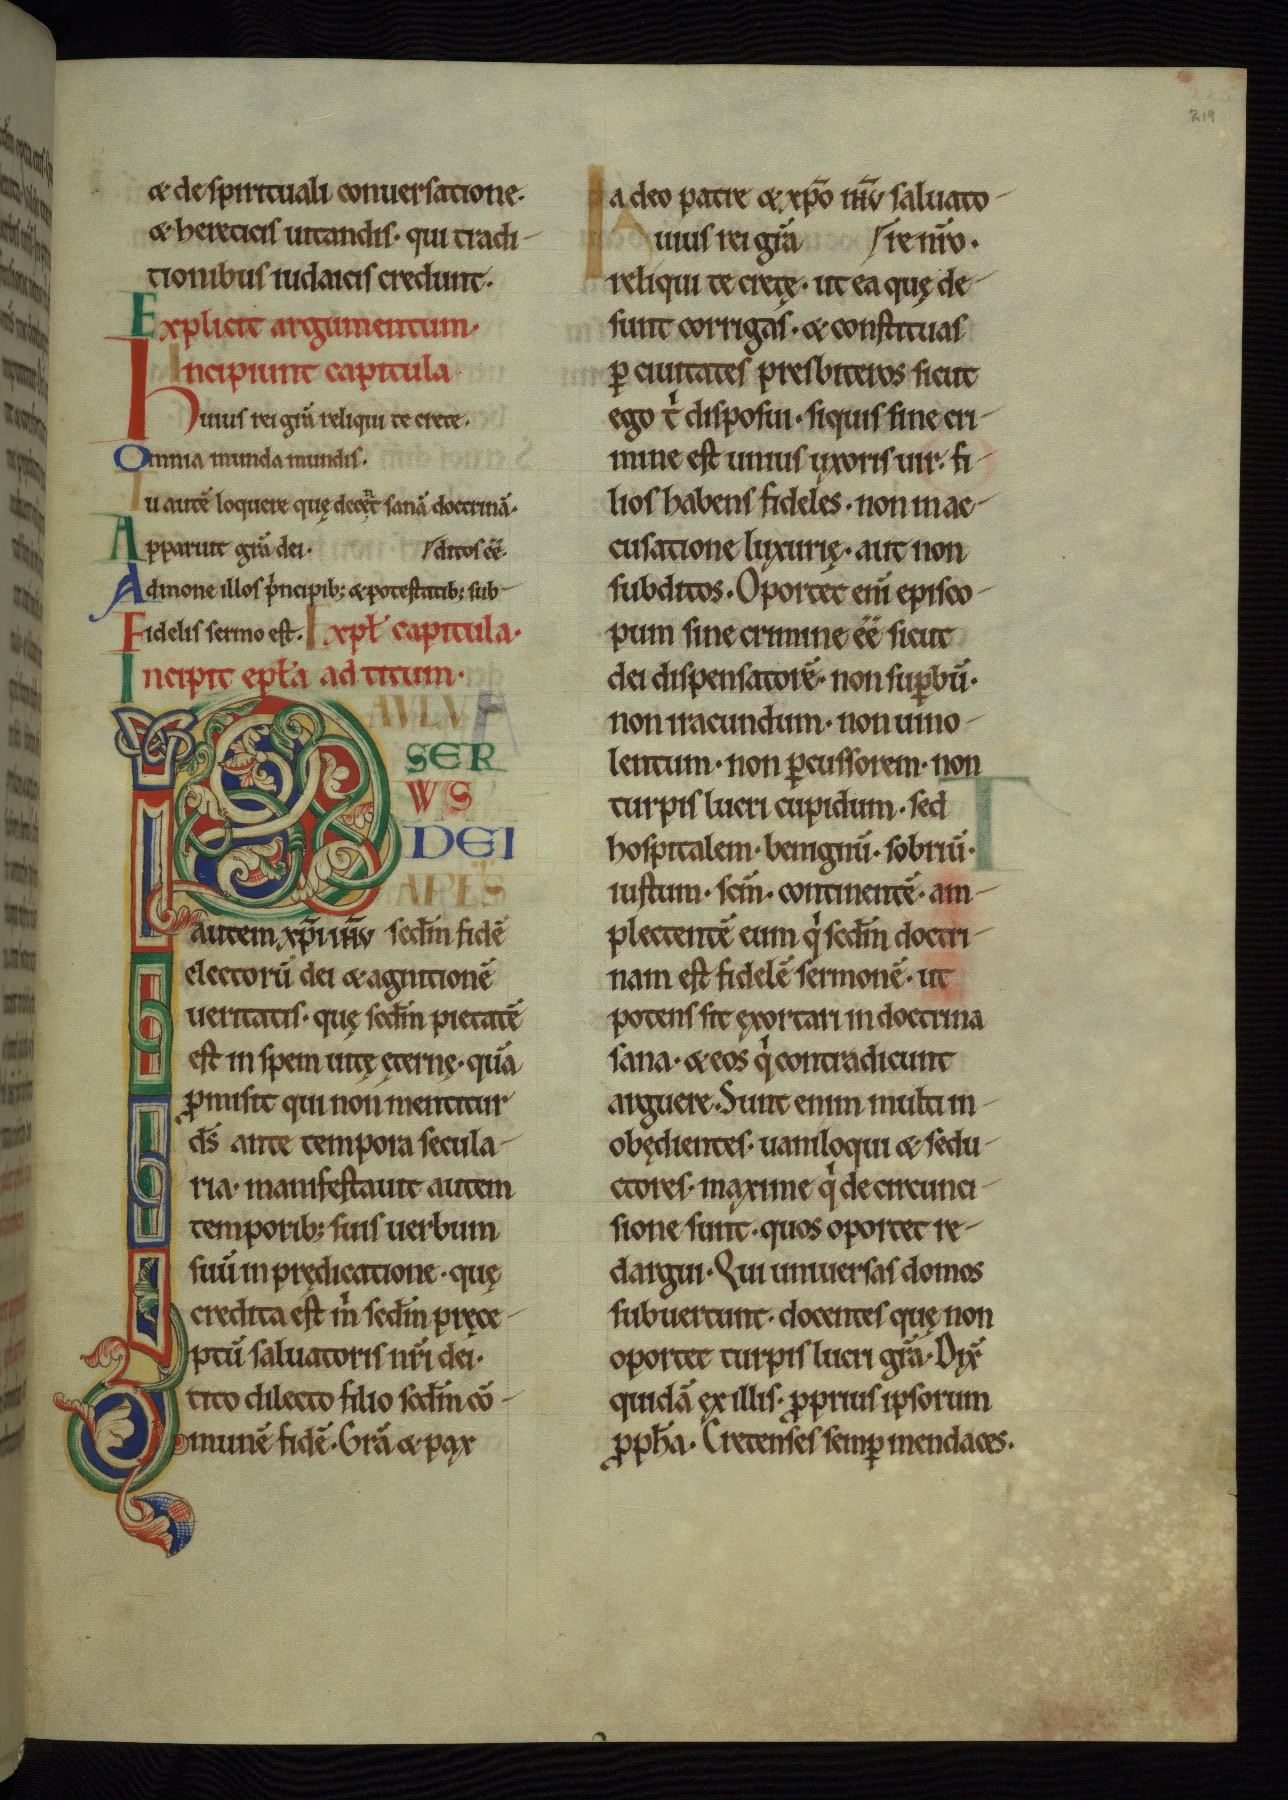 & de spirituali conuersatione·
& hereticis uitandis· qui tradi-
tionibus iudaicis credunt·
Explicit argumentum·
Incipiunt capitula·
Huius rei grā reliqui te crete·
Omnia munda mundis·
Tu autē loquere quę decent sanā doctrinā·
Apparuit grā dei·
ditos ēē·
Admone illos pncipib; & potestatib; sub-
Fidelis sermo est· Expł capitula·
Incipit epła ad titum·
PAVLVS
SER
VVS
DEI
APĽS
autem xp̄i ih̄u sedm̄ fidē
electorū dei & agnitionē
ueritatis· quę sedm̄ pietatē
est in spem uitę ęternę· quā
ꝓmisit qui non mentitur
ds̄ ante tempora secula-
ria· manifestauit autem
temporib; suis uerbum
suū in prędicatione· quę
credita est m̍ sedm̄ pręce-
ptū saluatoris nr̄i dei·
tito dilecto filio sedm̄ cō-
munē fidē· Grā & pax
a deo patre & xp̄o ih̄u saluato-
re nr̄o·
Huius rei grā
reliqui te cretę· ut ea quę de-
sunt corrigas· & constituas
ꝑ ciuitates presbiteros sicut
ego t̍ disposui· siquis sine cri-
mine est unius uxoris uir· fi-
lios habens fideles· non in ac-
cusatione luxurię· aut non
subditos· Oportet eni̅ episco-
pum sine crimine ēē sicut
dei dispensatorē· non suꝑbū·
non iracundum· non uino-
lentum· non ꝑcussorem· non
turpis lucri cupidum· sed
hospitalem· benignū· sobriū·
iustum· scm̄· continentē· am-
plectentē eum q̍ sedm̄ doctri-
nam est fidelē sermonē· ut
potens sit exortari in doctrina
sana· & eos q̍ contradicunt
arguere· Sunt enim multi in-
obędientes· uaniloqui & sedu-
ctores· maxime q̍ de circunci-
sione sunt· quos oportet re-
dargui· Qui uniuersas domos
subuertunt· docentes quę non
oportet turpis lucri grā· Dix̄
quidā ex illis· ꝓprius ipsorum
ꝓph̄a· Cretenses semꝑ mendaces·
219